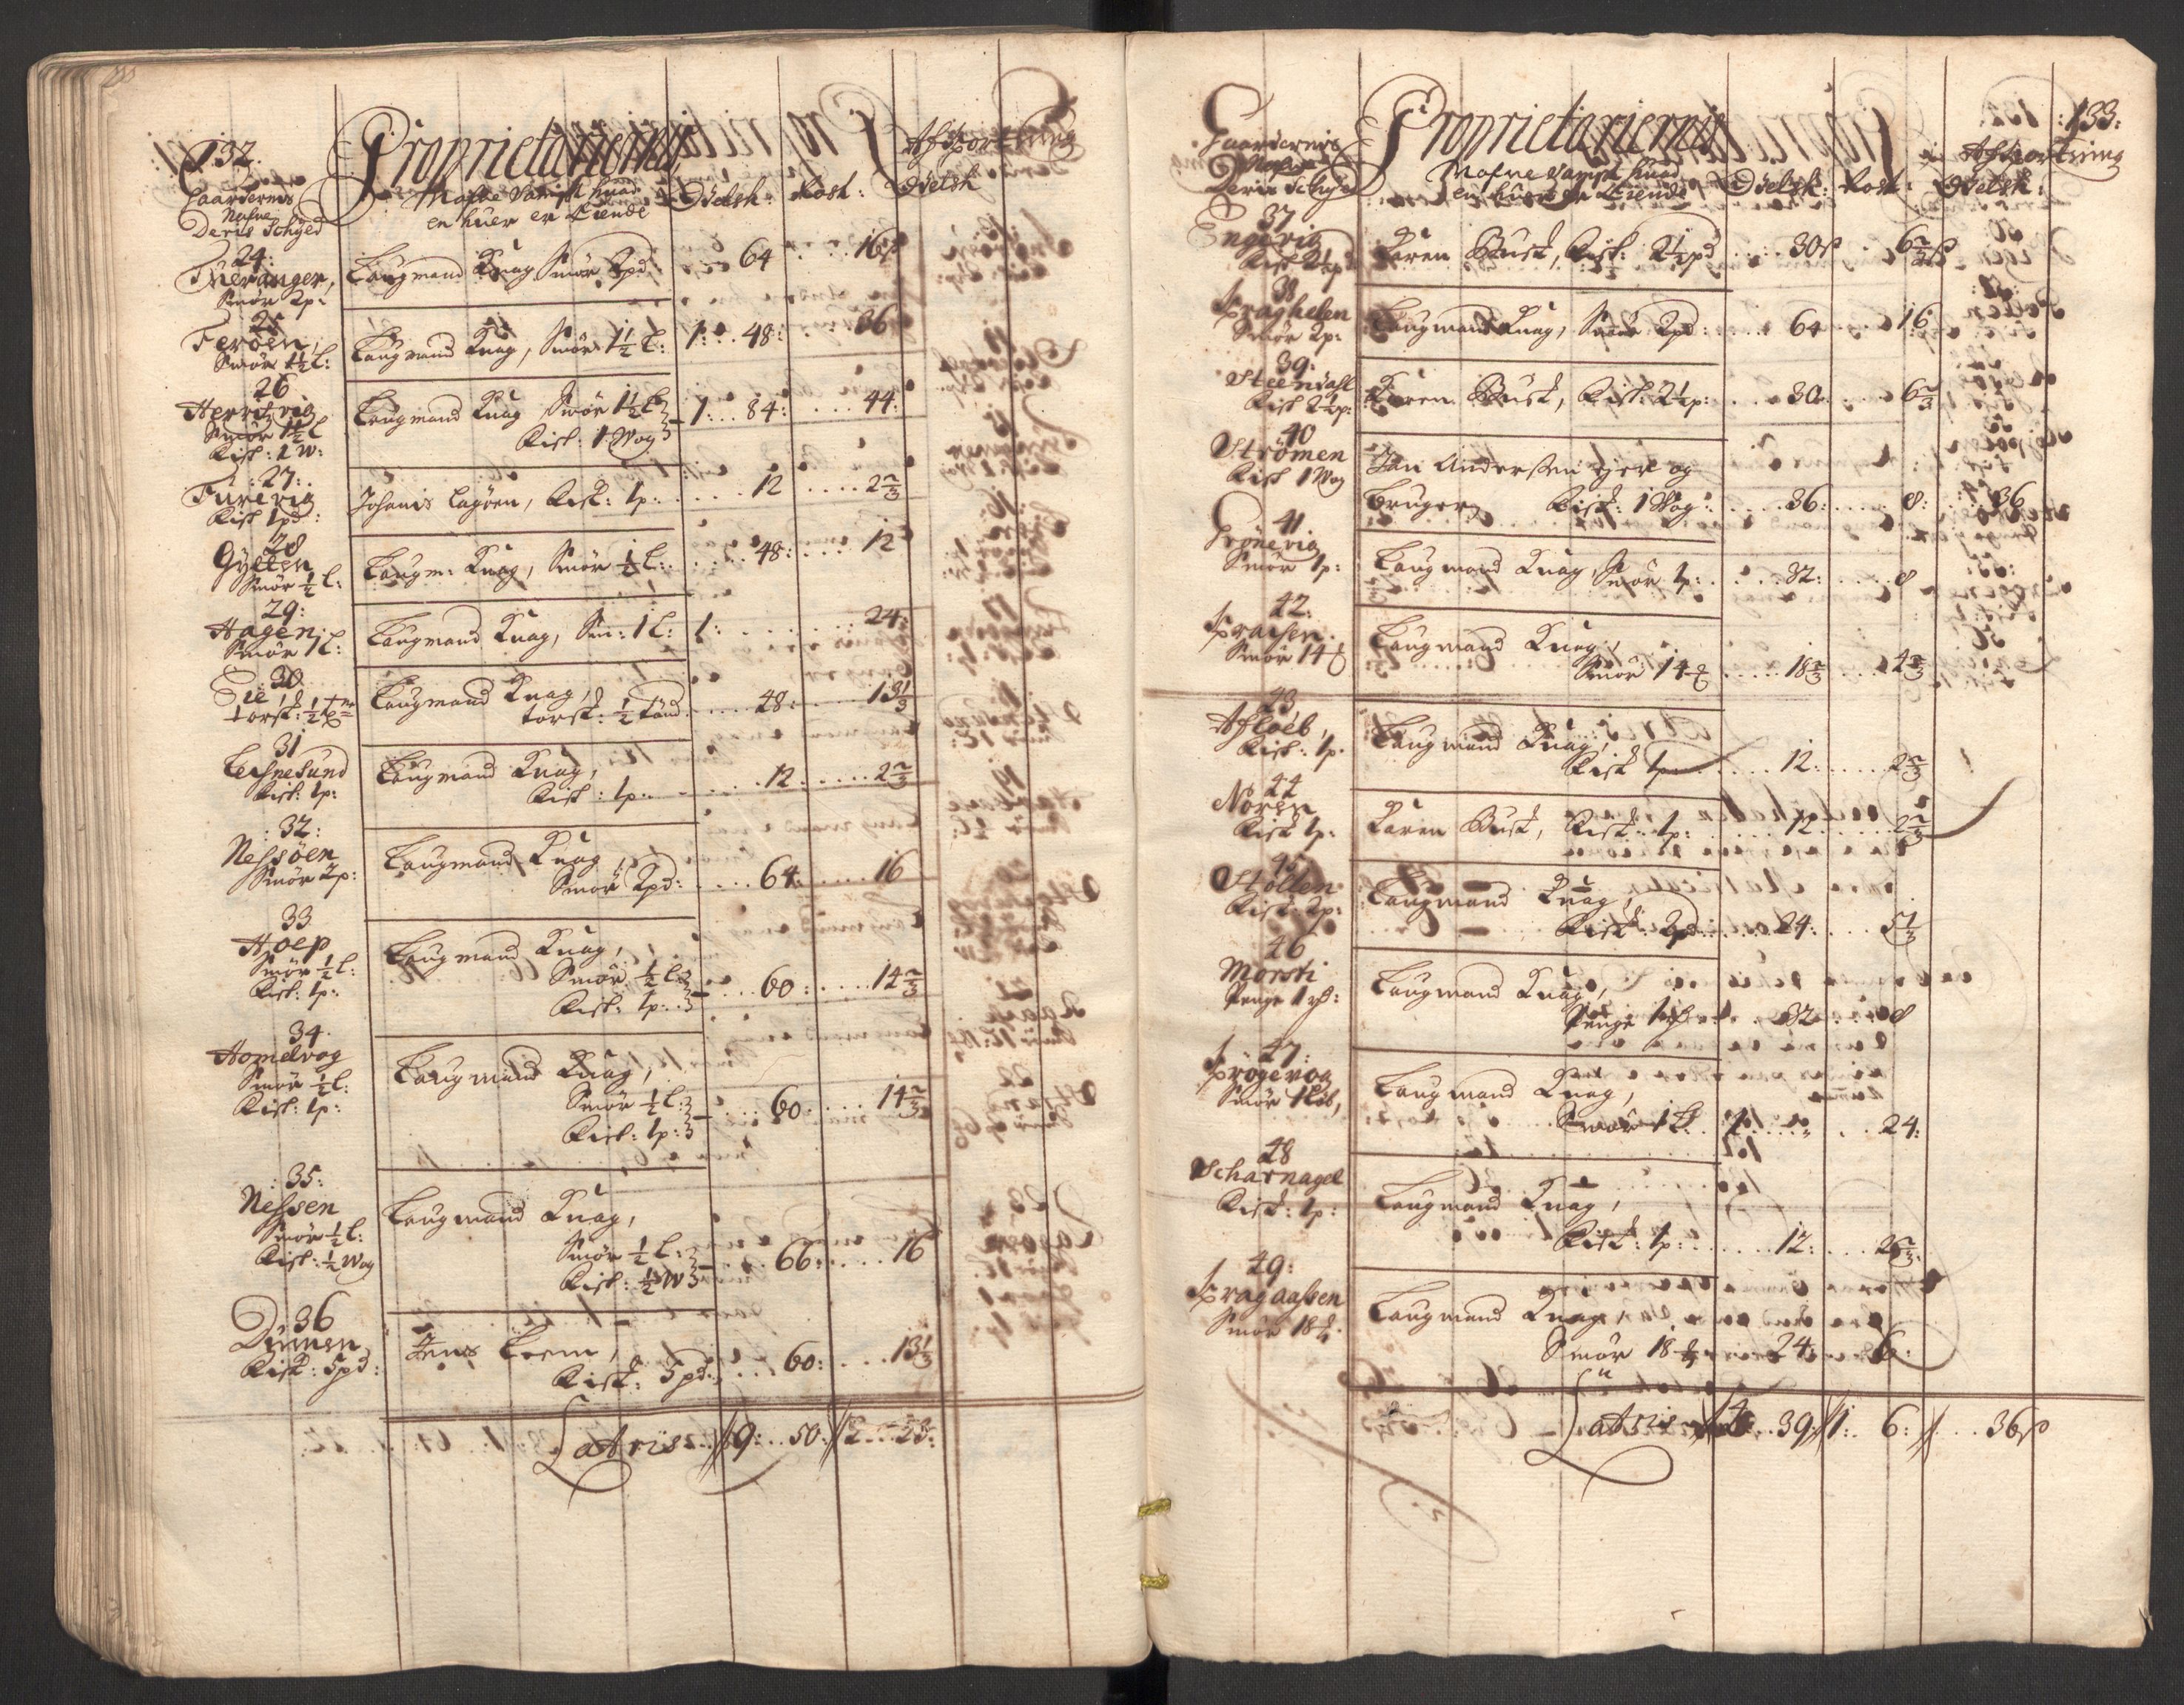 132.
Gaardernis
Nafne
Deris Schyld
Proprietariernis
Nafne Sampt huad
en huer er Eiende
Odelsk:
Rosk:
Afkortning
Odelsk
24:
Smör 2p:
Laugmand Knag Smör 2pd
64
16ß
25
Feröen,
Smör 1½ L:
Laugmand Knag, Smör 1½ L:
1: 48:
36
26
Herrisvig
Smör 1½ L
Fisk: 1 W:
Laugmand Knag Smör 1½ L
Fisk: 1 Wog
1: 84:
44:
:27:
Turevig
Fisk 1pd:
Johanis Lagöen, Fisk: 1p:
12
2⅔
28
Gylten
Smör ½ L:
Laugm: Knag, Smör ½ L:
48:
12
29:
Hagen:
Smör 1 L:
Laugmand Knag, Sm: 1 L:
1:
24:
30
Eie
torsk: ½ tne
Laugmand Knag,
torsk: ½ tönd
48:
13⅓
31
Leisnesund
Fisk: 1p:
Laugmand Knag,
Fisk: 1p:
12
2⅔
:32:
Nessöen
Smör 2p:
Laugmand Knag,
Smör 2pd:
64:
16
33
Hoep
Smör ½ L:
Fisk: 1p:
Laugmand Knag,
Smör ½ L:
Fisk: 1p:
60:
14⅔
34.
Homelvog
Smör ½ L:
Fisk: 1p:
Laugmand Knag,
Smör ½ L:
Fisk: 1p:
60:
14⅔
:35:
Nessen
Smör ½ L:
Fisk: ½ Wog
Laugmand Knag,
Smör ½ L:
Fisk: ½ W
66:
16
36
Dimen
Fisk: 5pd:
Jens Leem,
Fisk: 5pd:
60:
13⅓
Latris
9: 50:
2: 25:
133:
Gaardernis
Nafne
Deris Schyld
Proprietariernis
Nafne Sampt huad
en huer er Eiende
Odelsk:
Rosk:
Afkortning
Odelsk:
37
Engevig
Fisk 2½pd
Karen Busk, Fisk: 2½pd
30ß
6⅔ß
38
Kraghelen
Smör 2p:
Laugmand Knag, Smör 2pd:
64
16
39:
Steendahl
Fisk 2½p:
Karen Busk, Fisk: 2½p:
30
6⅔
40
Strömen
Fisk 1 Wog
Jan Anderssen ejer og
bruger Fisk: 1 Wog:
36:
8:
36
41
Grönevig
Smör 1p:
Laugmand Knag, Smör 1p:
32:
8
42:
Kraisen.
Smör 14
Laugmand Knag,
Smör 14
18⅔
4⅔
43
Afloeb,
Fisk: 1p.
Laugmand Knag,
Fisk 1p
12:
2⅔
44
Nören
Fisk 1p:
Karen Busk, Fisk: 1p:
12:
2⅔
45
Stollen
Fisk: 2p:
Laugmand Knag,
Fisk: 2pd:
24:
5⅓
46
Morsti
Penge 1
Laugmand Knag,
Penge 1
32
8
47:
Krögevog
Smör 1 Löb,
Laugmand Knag,
Smör 1 L:
1:
24:
48
Scharnagel
Fisk: 1p:
Laugmand Knag,
Fisk: 1p:
12:
2⅔:
49:
Kragaassen
Smör 18
Laugmand Knag,
Smör 18
24:
6:
Latris
39
1: 6:
36ß